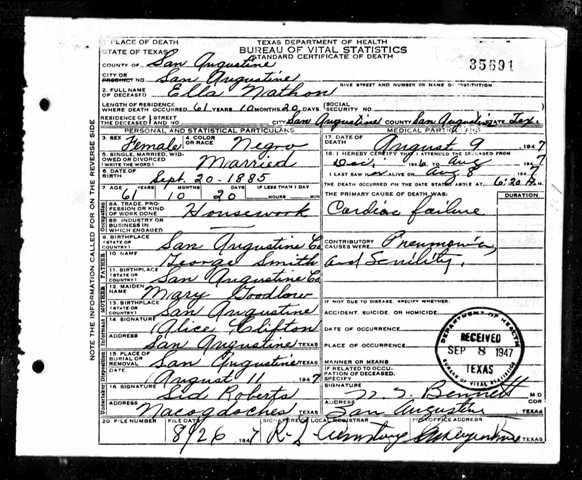 PLACE OF DEATH
STATE OF TEXAS
TEXAS DEPARTMENT OF HEALTH
BUREAU OF VITAL STATISTICS
STANDARD CERTIFICATE OF DEATH
35691
COUNTY OF San Augustine
CITY OR PRECINCT NO. San Augustine
2. FULL NAME OF DECEASED Ella Nathon
GIVE STREET AND NUMBER OR NAME OF INSTITUTION
LENGTH OF RESIDENCE WHERE DEATH OCCURRED 61 YEARS 10 MONTHS 20 DAYS
SOCIAL SECURITY NO.
RESIDENCE OF THE DECEASED STREET AND NO. CITY San Augustine COUNTY San Augustine STATE Tex.
PERSONAL AND STATISTICAL PARTICULARS
3. SEX Female
4. COLOR OR RACE Negro
5. SINGLE, MARRIED, WIDOWED OR DIVORCED (WRITE THE WORD) Married
6. DATE OF BIRTH Sept. 20-1885
7. AGE 61 10 20
IF LESS THAN 1 DAY
8A. TRADE, PROFESSION OR KIND OF WORK DONE Housework
8B. INDUSTRY OR BUSINESS IN WHICH ENGAGED
9. BIRTHPLACE (STATE OR COUNTRY) San Augustine Co
10. NAME George Smith
11. BIRTHPLACE (STATE OR COUNTRY) San Augustine Co
12. MAIDEN NAME Mary Goodlow
13. BIRTHPLACE (STATE OR COUNTRY) San Augustine
14. SIGNATURE Alice Clifton
ADDRESS San Augustine TEXAS
15. PLACE OF BURIAL OR REMOVAL San Augustine TEXAS
August 11 1947
16. SIGNATURE Sid Roberts
ADDRESS Nacogdoches TEXAS
MEDICAL PARTICULARS
17. DATE OF DEATH August 9 1947
18. I HEREBY CERTIFY THAT I ATTENDED THE DECEASED FROM
Aug 1947
I LAST SAW ALIVE ON Aug 8 1947
THE DEATH OCCURRED ON THE DATE STATED ABOVE AT 6:20 A.M.
THE PRIMARY CAUSE OF DEATH WAS:
DURATION
Cardiac failure
CONTRIBUTORY CAUSES WERE: Pneumonia
and Senility.
IF NOT DUE TO DISEASE, SPECIFY WHETHER:
ACCIDENT, SUICIDE, OR HOMICIDE
DATE OF OCCURRENCE
PLACE OF OCCURRENCE
MANNER OR MEANS
IF RELATED TO OCCUPATION OF DECEASED, SPECIFY
SIGNATURE Bennett M D
COR
ADDRESS San Augustine TEXAS
DEPARTMENT OF HEALTH
RECEIVED
SEP 8 1947
TEXAS
BUREAU OF VITAL STATISTICS
20. FILE NO.
FILE DATE 8/26 1947
SIGNATURE OF LOCAL REGISTRAR
POST OFFICE ADDRESS
TEXAS
NOTE THE INFORMATION CALLED FOR ON THE REVERSE SIDE